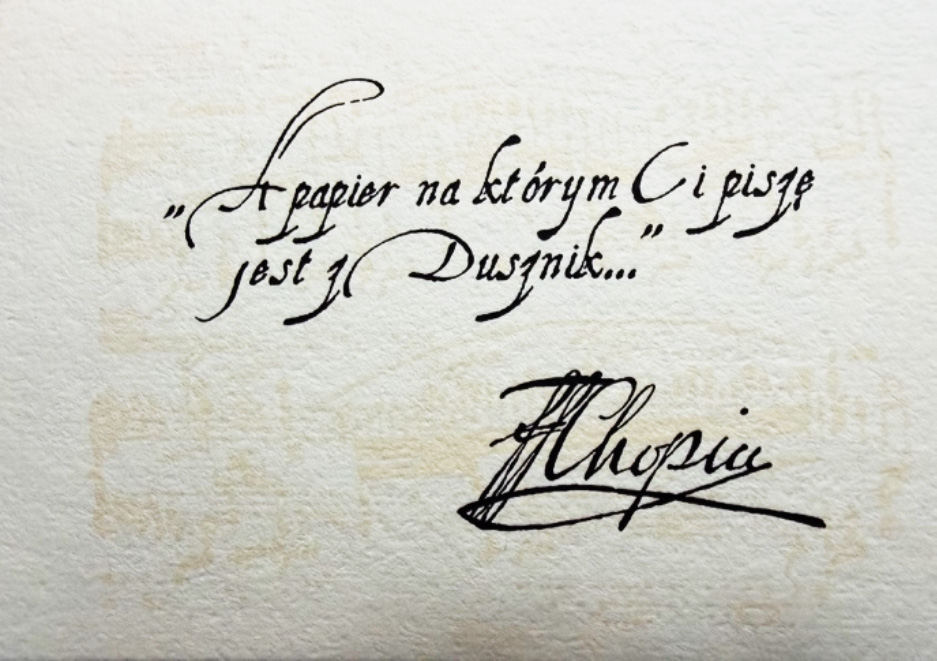 „A papier na którym Ci piszę
jest z Dusznik..."
FFChopin